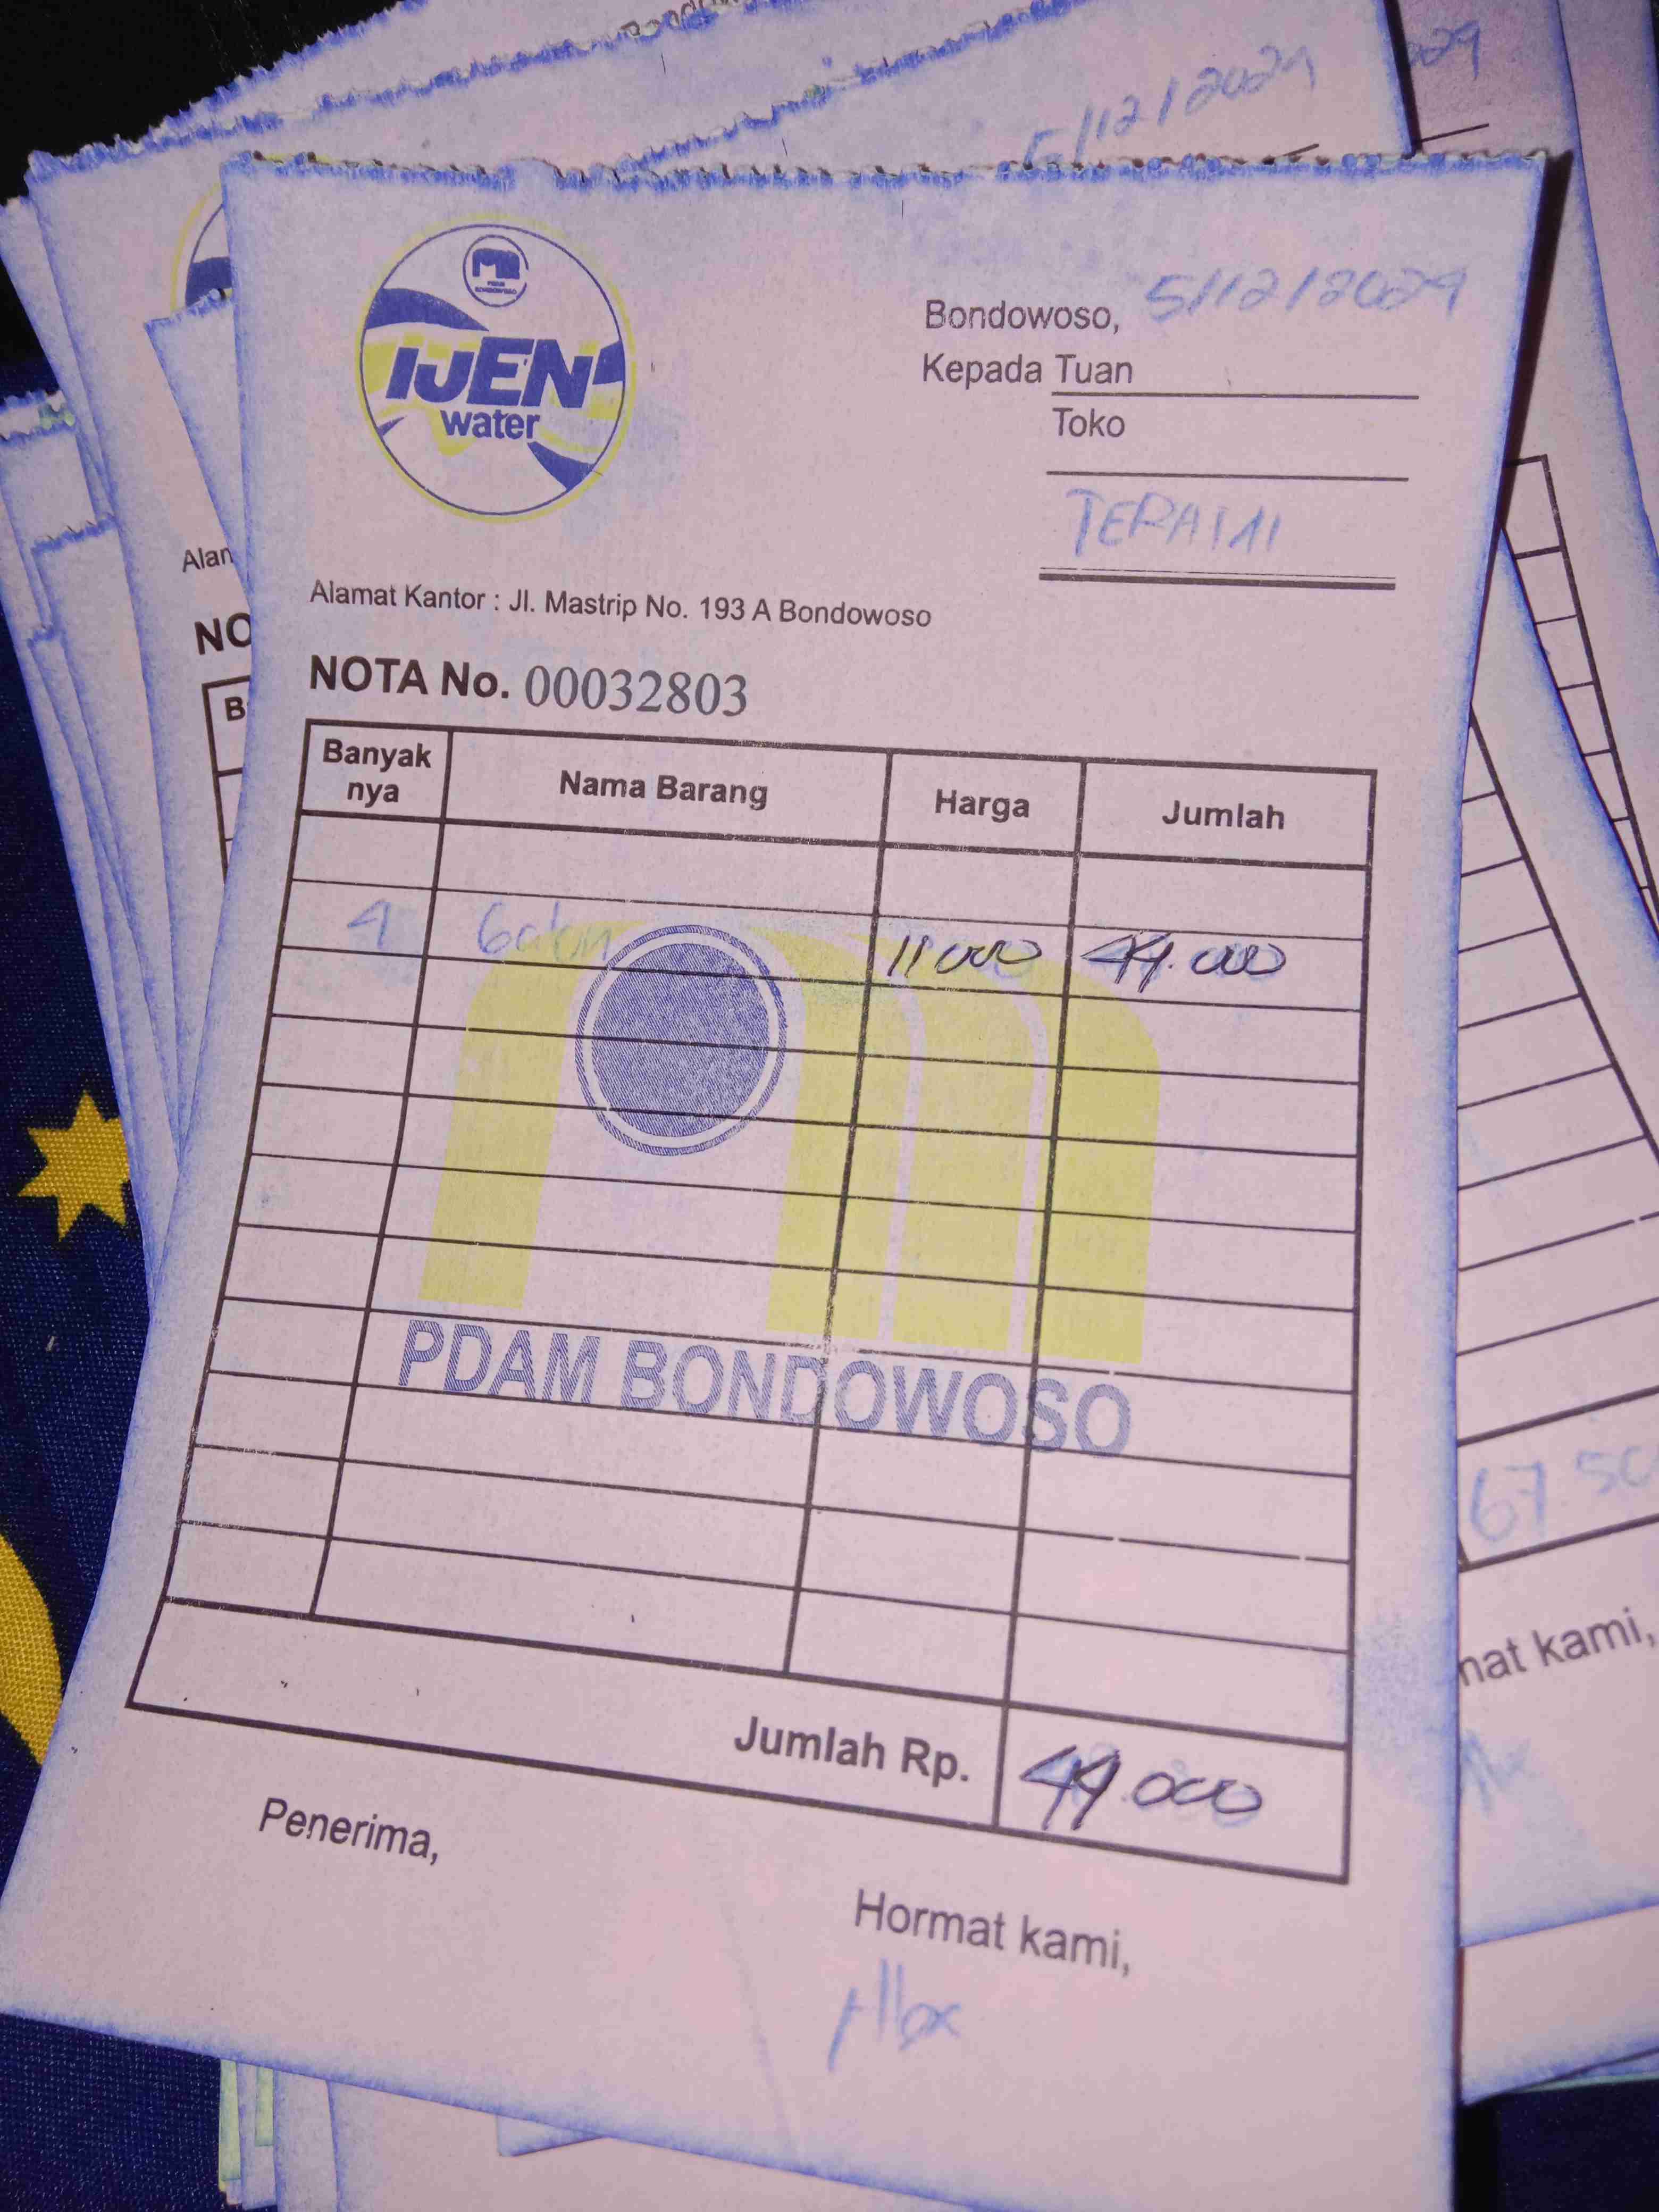 5/12/2024
IJEN
water
Bondowoso, 5/12/2024
Kepada Tuan
Toko
Alamat Kantor : Jl. Mastrip No. 193 A Bondowoso
NOTA No. 00032803
Banyak nya Nama Barang Harga Jumlah
4 Galon 11 000 44.000
PDAM BONDOWOSO
Jumlah Rp. 44.000
Penerima,
Hormat kami,
Alan
NO
B
67 50
mat kami,